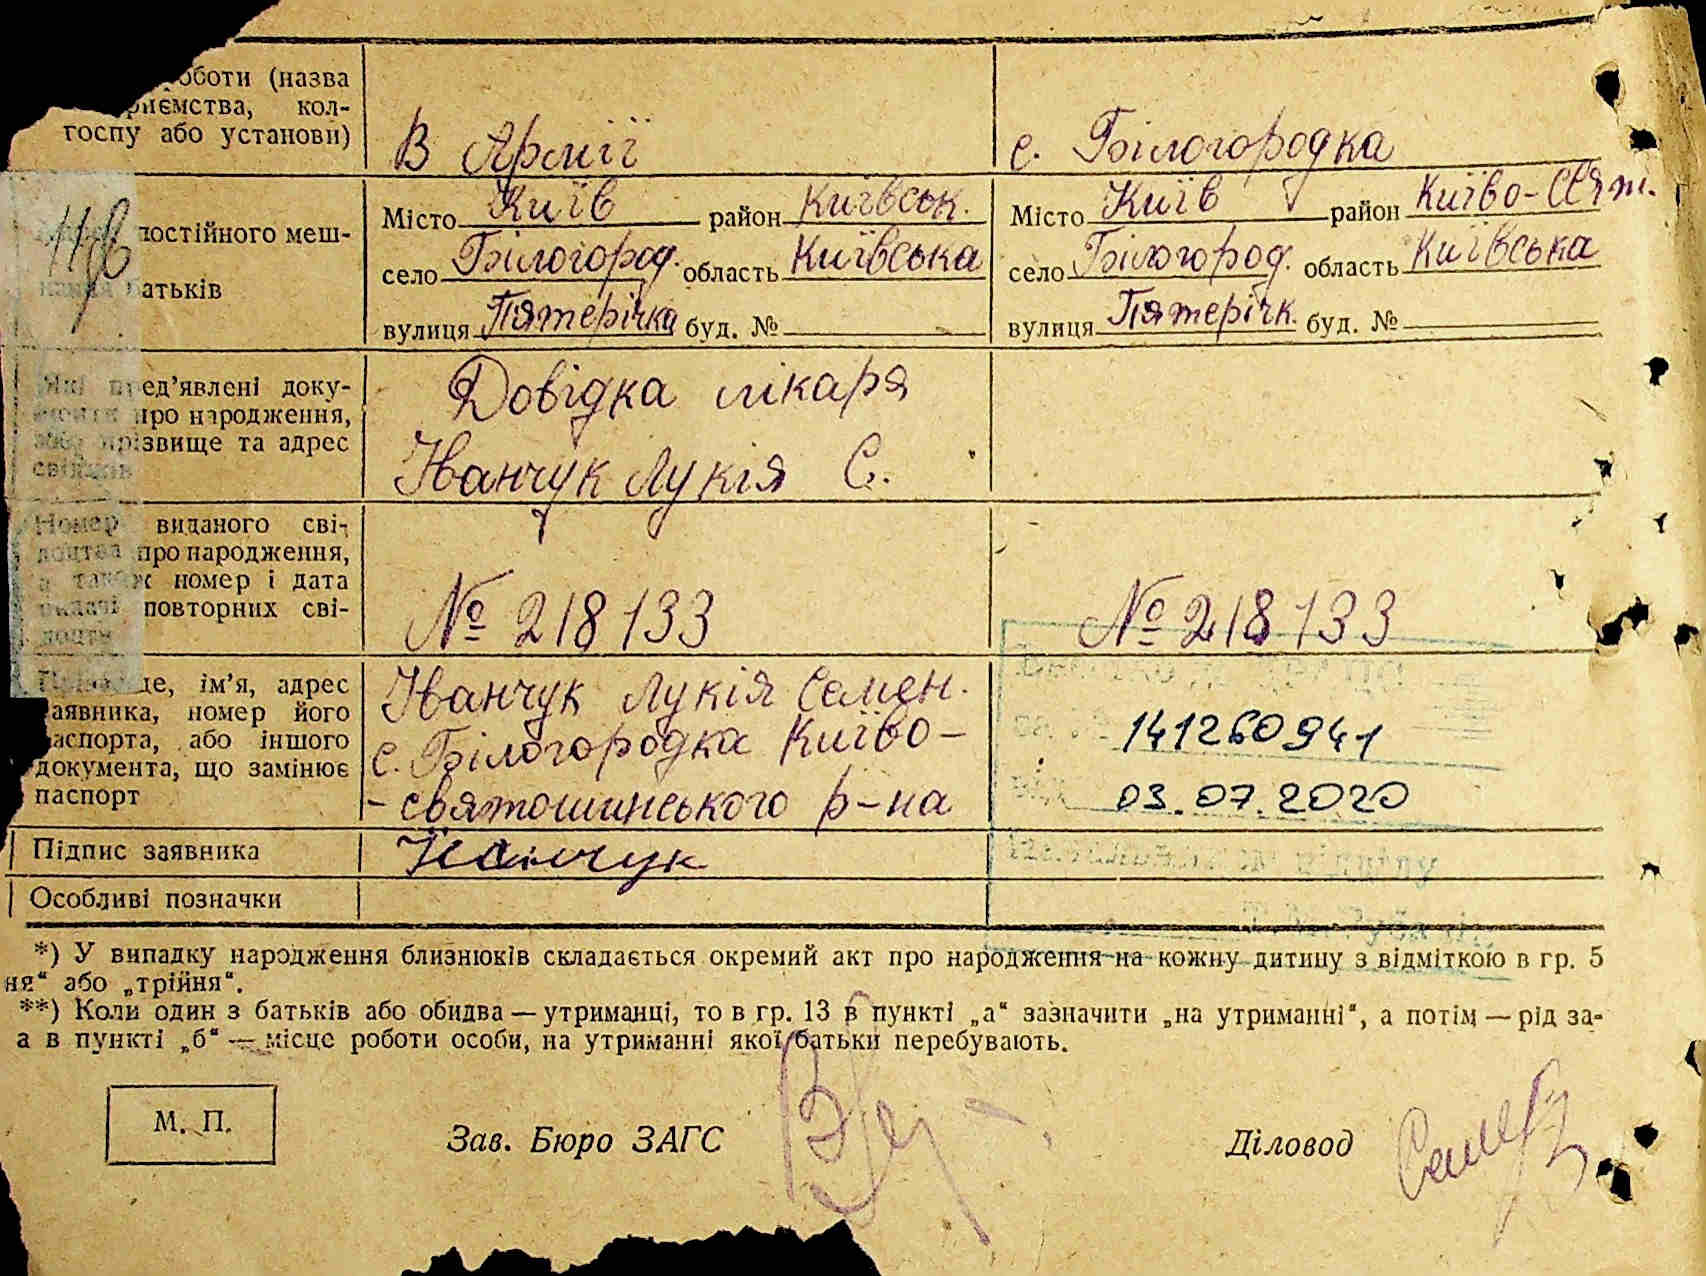 роботи (назва
приємства, кол-
госпу або установи)
В Армії
с. Білогородка
постійного меш-
батьків
Місто Київ район Київськ.
село Білогород. область Київська
вулиця Пятерічка буд. №
Місто Київ район Києво-Свят.
село Білогород. область Київська
вулиця Пятерічк. буд. №
Які пред’явлені доку-
менти про народження,
або прізвище та адрес
свідків
Довідка лікаря
Іванчук Лукія С.
Номер виданого сві-
доцтва про народження,
а також номер і дата
видачі повторних сві-
доцтв
№ 218133
№ 218133
Прізвище, ім’я, адрес
заявника, номер його
паспорта, або іншого
документа, що замінює
паспорт
Іванчук Лукія Семен.
с. Білогородка Київо-
-святошинського р-на
141260941
03.07.2020
Підпис заявника
Іванчук
Особливі позначки
*) У випадку народження близнюків складається окремий акт про народження на кожну дитину з відміткою в гр. 5
ня“ або „трійня“.
**) Коли один з батьків або обидва — утриманці, то в гр. 13 в пункті „а“ зазначити „на утриманні“, а потім — рід за-
а в пункті „б“ — місце роботи особи, на утриманні якої батьки перебувають.
М. П.
Зав. Бюро ЗАГС
Діловод